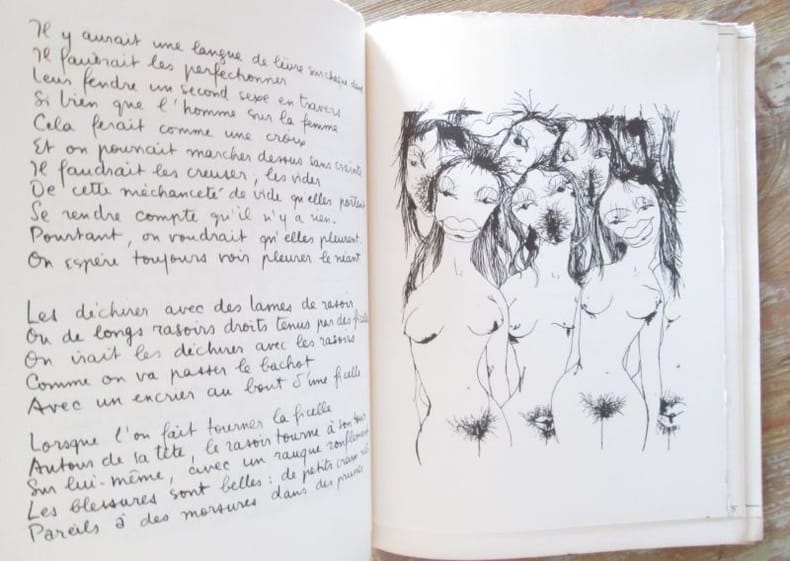 Il y aurait une langue de lèvre sur chaque
Il faudrait les perfectionner
Leur fendre un second sexe en travers
Si bien que l'homme sur la femme
Cela ferait comme une croix
Et on pourrait marcher dessus sans crainte
Il faudrait les creuser, les vider
De cette méchanceté de vide qu'elles portent
Se rendre compte qu'il n'y a rien.
Pourtant, on voudrait qu'elles pleurent.
On espère toujours voir pleurer le néant
Les déchirer avec des lames de rasoir
Ou de longs rasoirs droits tenus par des ficelles
On irait les déchirer avec les rasoirs
Comme on va passer le bachot
Avec un encrier au bout d'une ficelle
Lorsque l'on fait tourner la ficelle
Autour de la tête, le rasoir tourne à son tour
Sur lui-même, avec un rauque ronflement
Les blessures sont belles : de petits
Pareils à des morsures dans des prunes